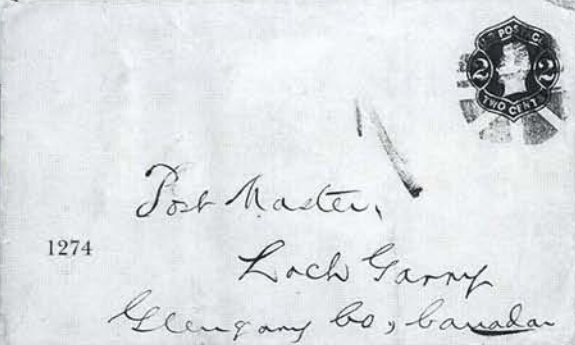 U.S. POSTAGE
2 2
TWO CENTS
Post Master,
1274
Loch Garry
Glengary Co, Canada